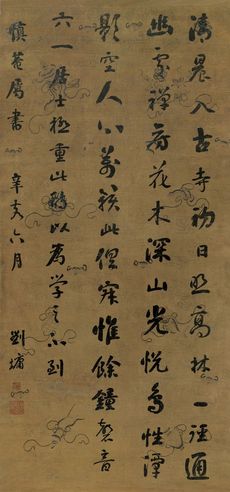 清晨入古寺初日照高林一徑通
幽處禪房花木深山光悅鳥性潭
影空人心萬籟此俱寂惟餘鐘磬音
六一居士極重此以為學之不到
慎菴屬書 辛亥六月 劉墉